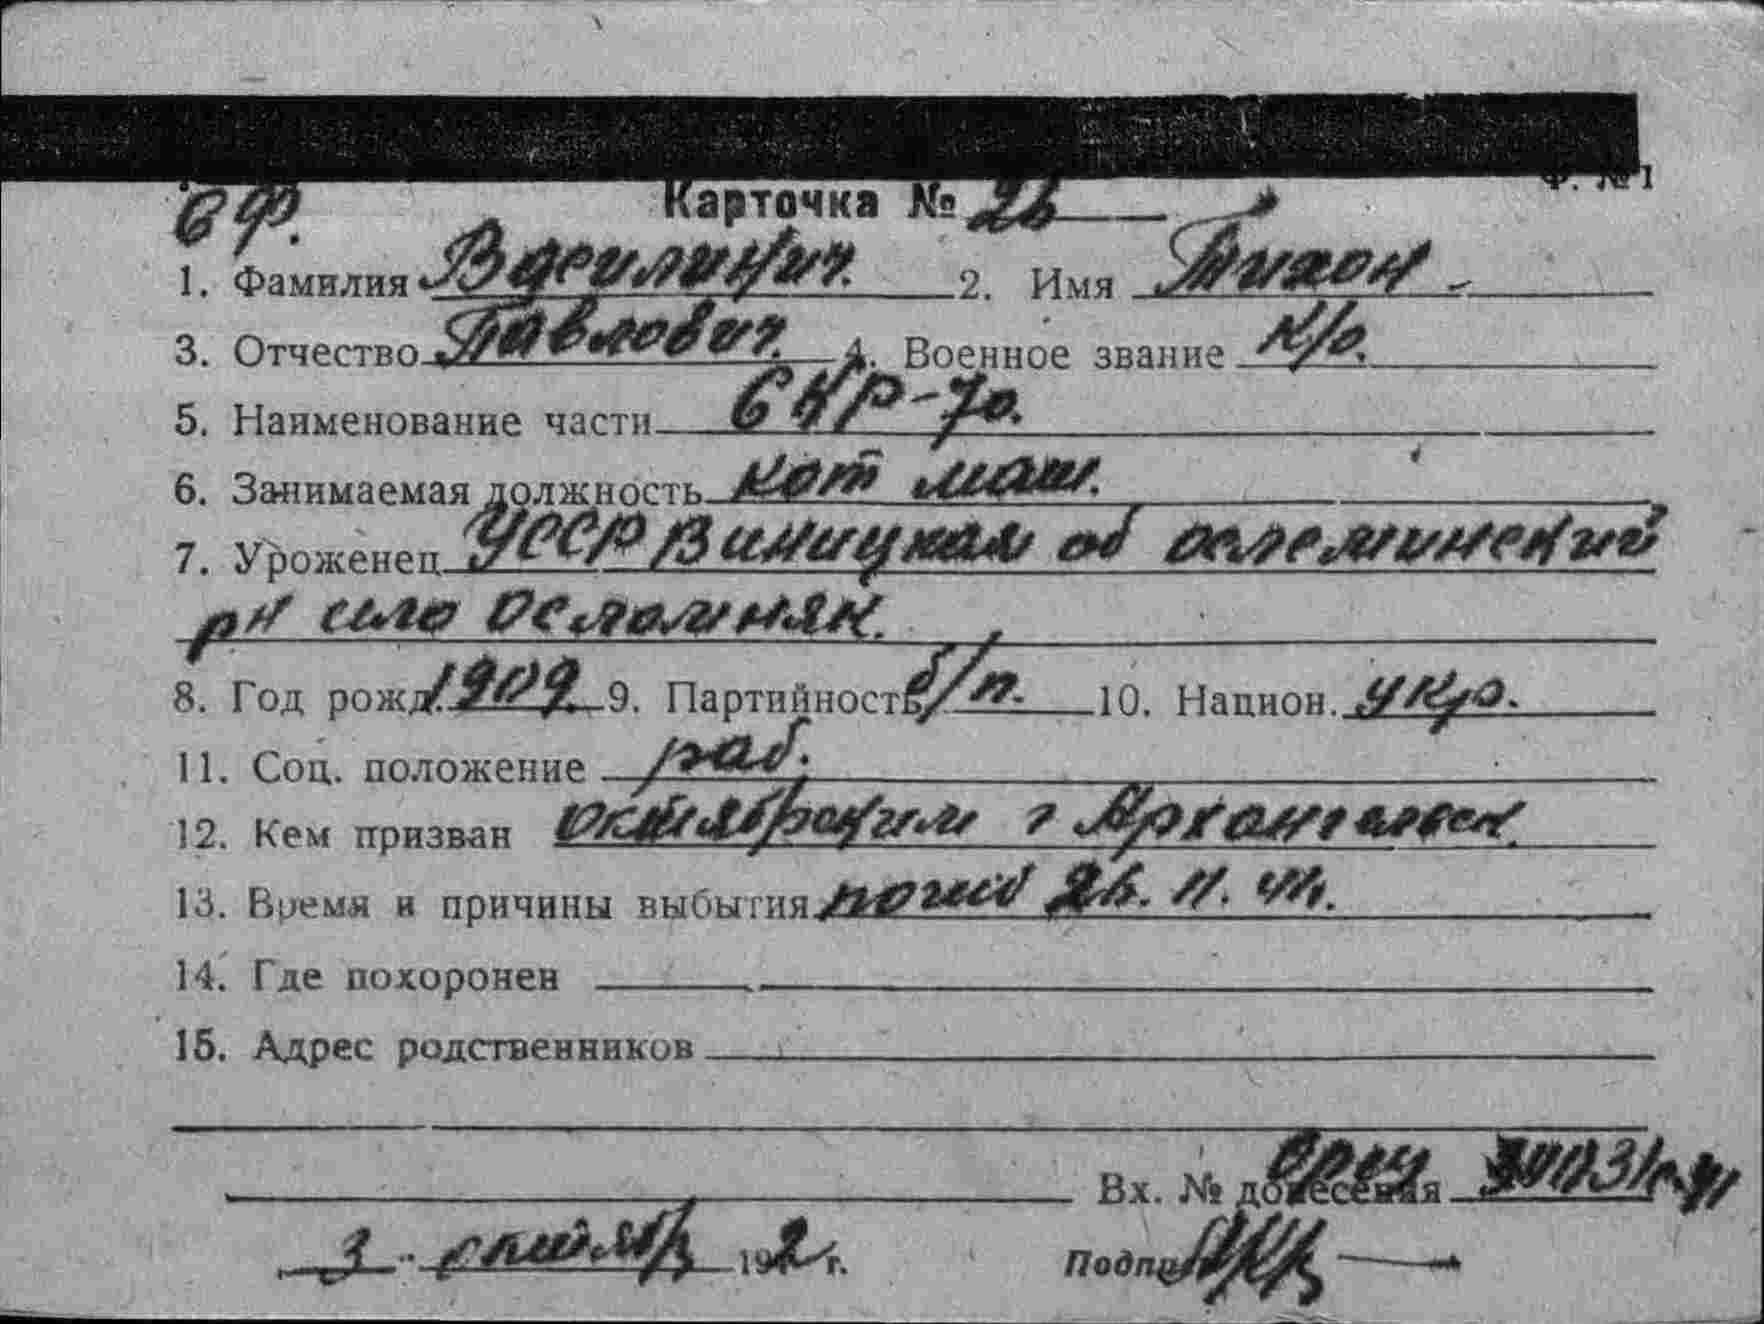 Ф. № 1
СФ. Карточка №
1. Фамилия Василинич. 2. Имя Тихон
3. Отчество Павлович. 4. Военное звание к/ф.
5. Наименование части СКР-70.
6. Занимаемая должность кот маш.
7. Уроженец УССР Виницкая об
рн село
8. Год рожд. 1909. 9. Партийность б/п. 10. Национ. укр.
11. Соц. положение раб.
12. Кем призван г Архангельск
13. Время и причины выбытия погиб
14. Где похоронен
15. Адрес родственников
Вх. № донесения
3 194 г. Подпись